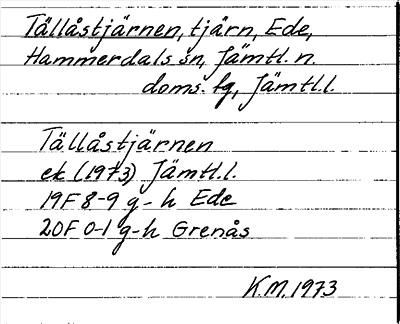 Tällåstjärnen, tjärn, Ede,
Hammerdals sn, Jämtl. n.
doms. fg, Jämtl.l.
Tällåstjärnen
ek (1973) Jämtl.l.
19F 8-9 g-h Ede
20F 0-1 g-h Grenås
K.M. 1973